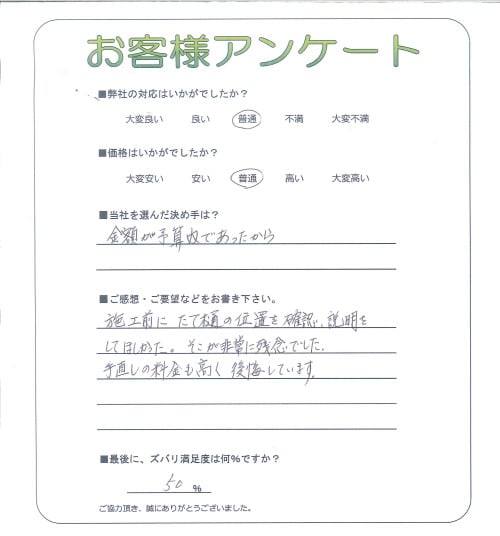 お客様アンケート
■弊社の対応はいかがでしたか？
大変良い 良い 普通 不満 大変不満
■価格はいかがでしたか？
大変安い 安い 普通 高い 大変高い
■当社を選んだ決め手は？
金額が予算内であったから
■ご感想・ご要望などをお書き下さい。
施工前に たて樋の位置を確認、説明を
してほしかった。そこが非常に残念でした.
手直しの料金も高く 後悔しています.
■最後に、ズバリ満足度は何%ですか？
50 %
ご協力頂き、誠にありがとうございました。